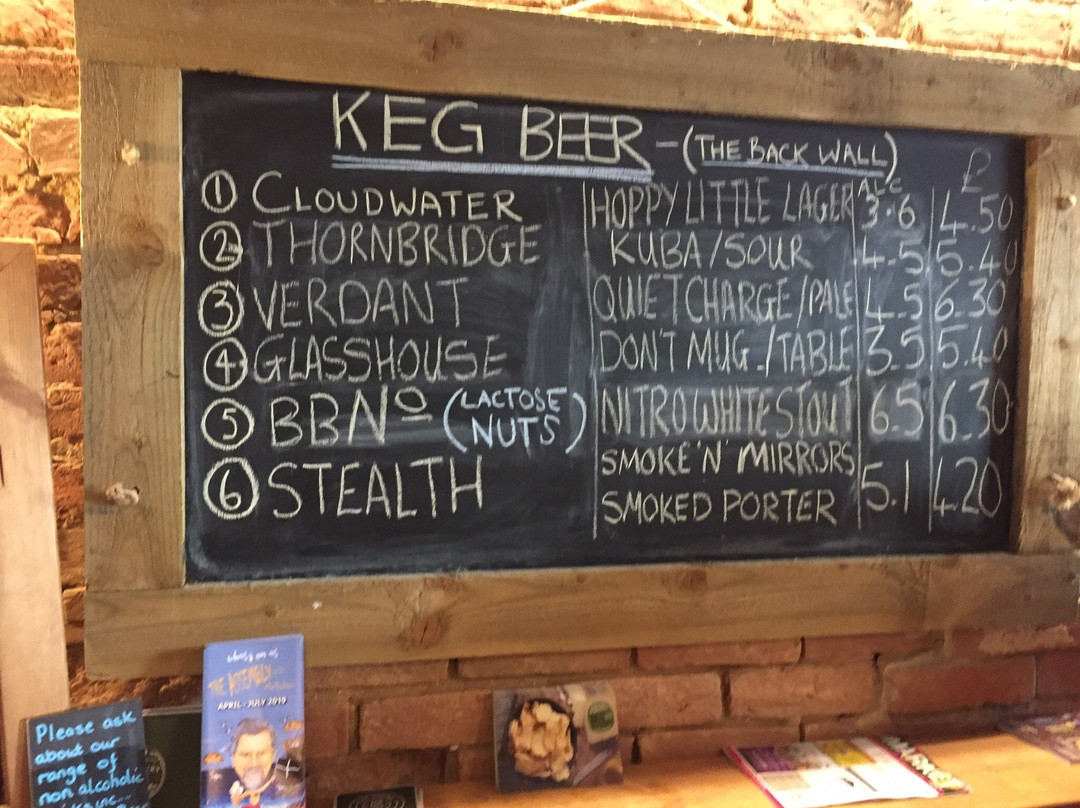 KEG BEER - (THE BACK WALL)
ALC £
① CLOUDWATER HOPPY LITTLE LAGER 3.6 4.50
② THORNBRIDGE KUBA/SOUR 4.5 5.40
③ VERDANT QUIET CHARGE/PALE 4.5 6.30
④ GLASSHOUSE DON'T MUG./TABLE 3.5 5.40
⑤ BBNº (LACTOSE NUTS) NITRO WHITE STOUT 6.5 6.30
⑥ STEALTH SMOKE 'N' MIRRORS
SMOKED PORTER 5.1 4.20
THE ASSEMBLY
APRIL - JULY 2019
Please ask
about our
range of
non alcoholic